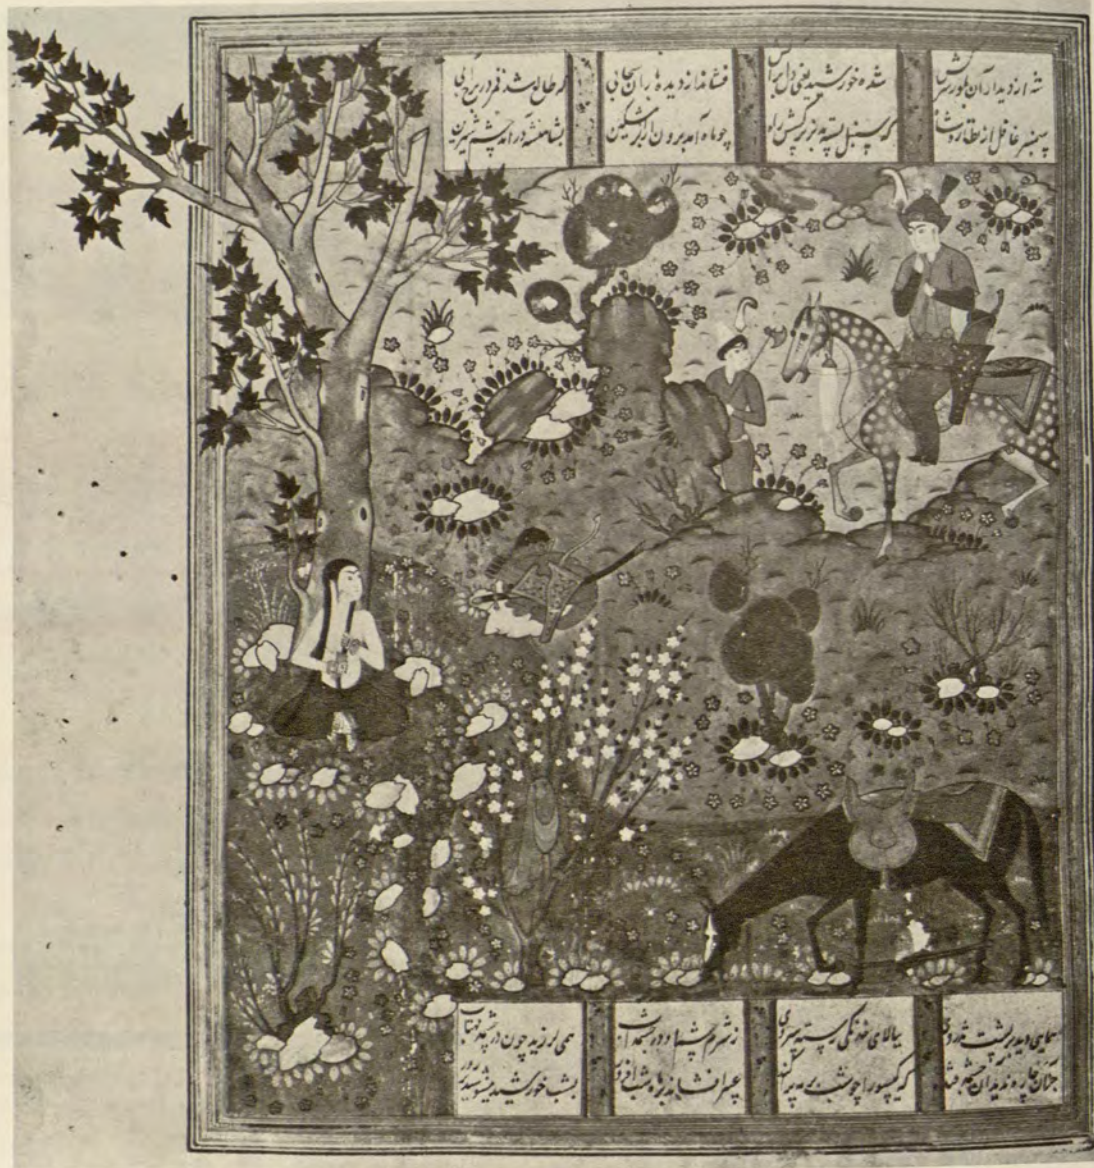 شه از دیدار آن بلور دلکش شده خورشید یعنی دل پر آتش فشاند از دیده باران سحابی که طالع شد قمر در برج آبی
سمنبر غافل از نظاره شاه که سنبل بسته بد بر نرگسش راه چو ماه آمد برون از ابر مشکین بشاهنشه در آمد چشم شیرین
همایی دید بر پشت تذروی ببالای خدنگی رسته سروی ز شرم چشم او در چشمه آب همی لرزید چون در چشمه مهتاب
جز آن چاره ندید آن چشمه قند که گیسو را چو شب بر مه پراکند عبیر افشاند بر ماه شب افروز بشب خورشید میپوشید در روز